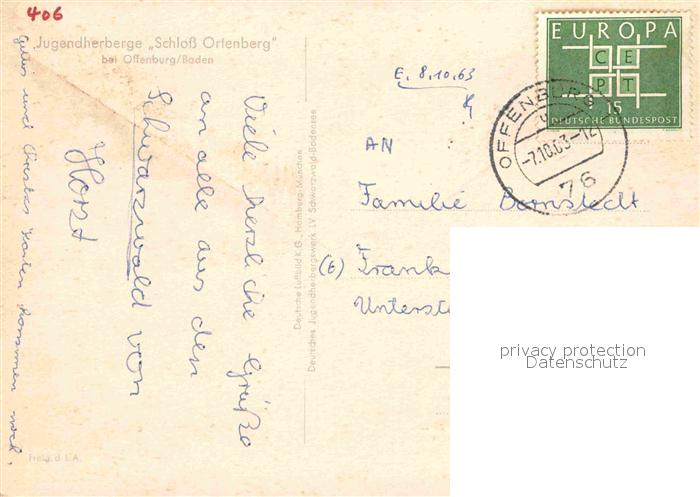 406
Jugendherberge „Schloß Ortenberg"
bei Offenburg/Baden
Viele herzliche Grüße
an alle aus den
Schwarzwald von
Horst
und Christas Karten kommen noch.
Freig. d. I.A.
Deutsche Luftbild K.G., Hamburg-München
Deutsches Jugendherbergswerk LV Schwarzwald-Bodensee
E. 8.10.63
EUROPA
CEPT
15
DEUTSCHE BUNDESPOST
OFFENBURG
-7.10.63-12
76
AN
Familie Bornstedt
(6) Frank
Unterst
privacy protection
Datenschutz